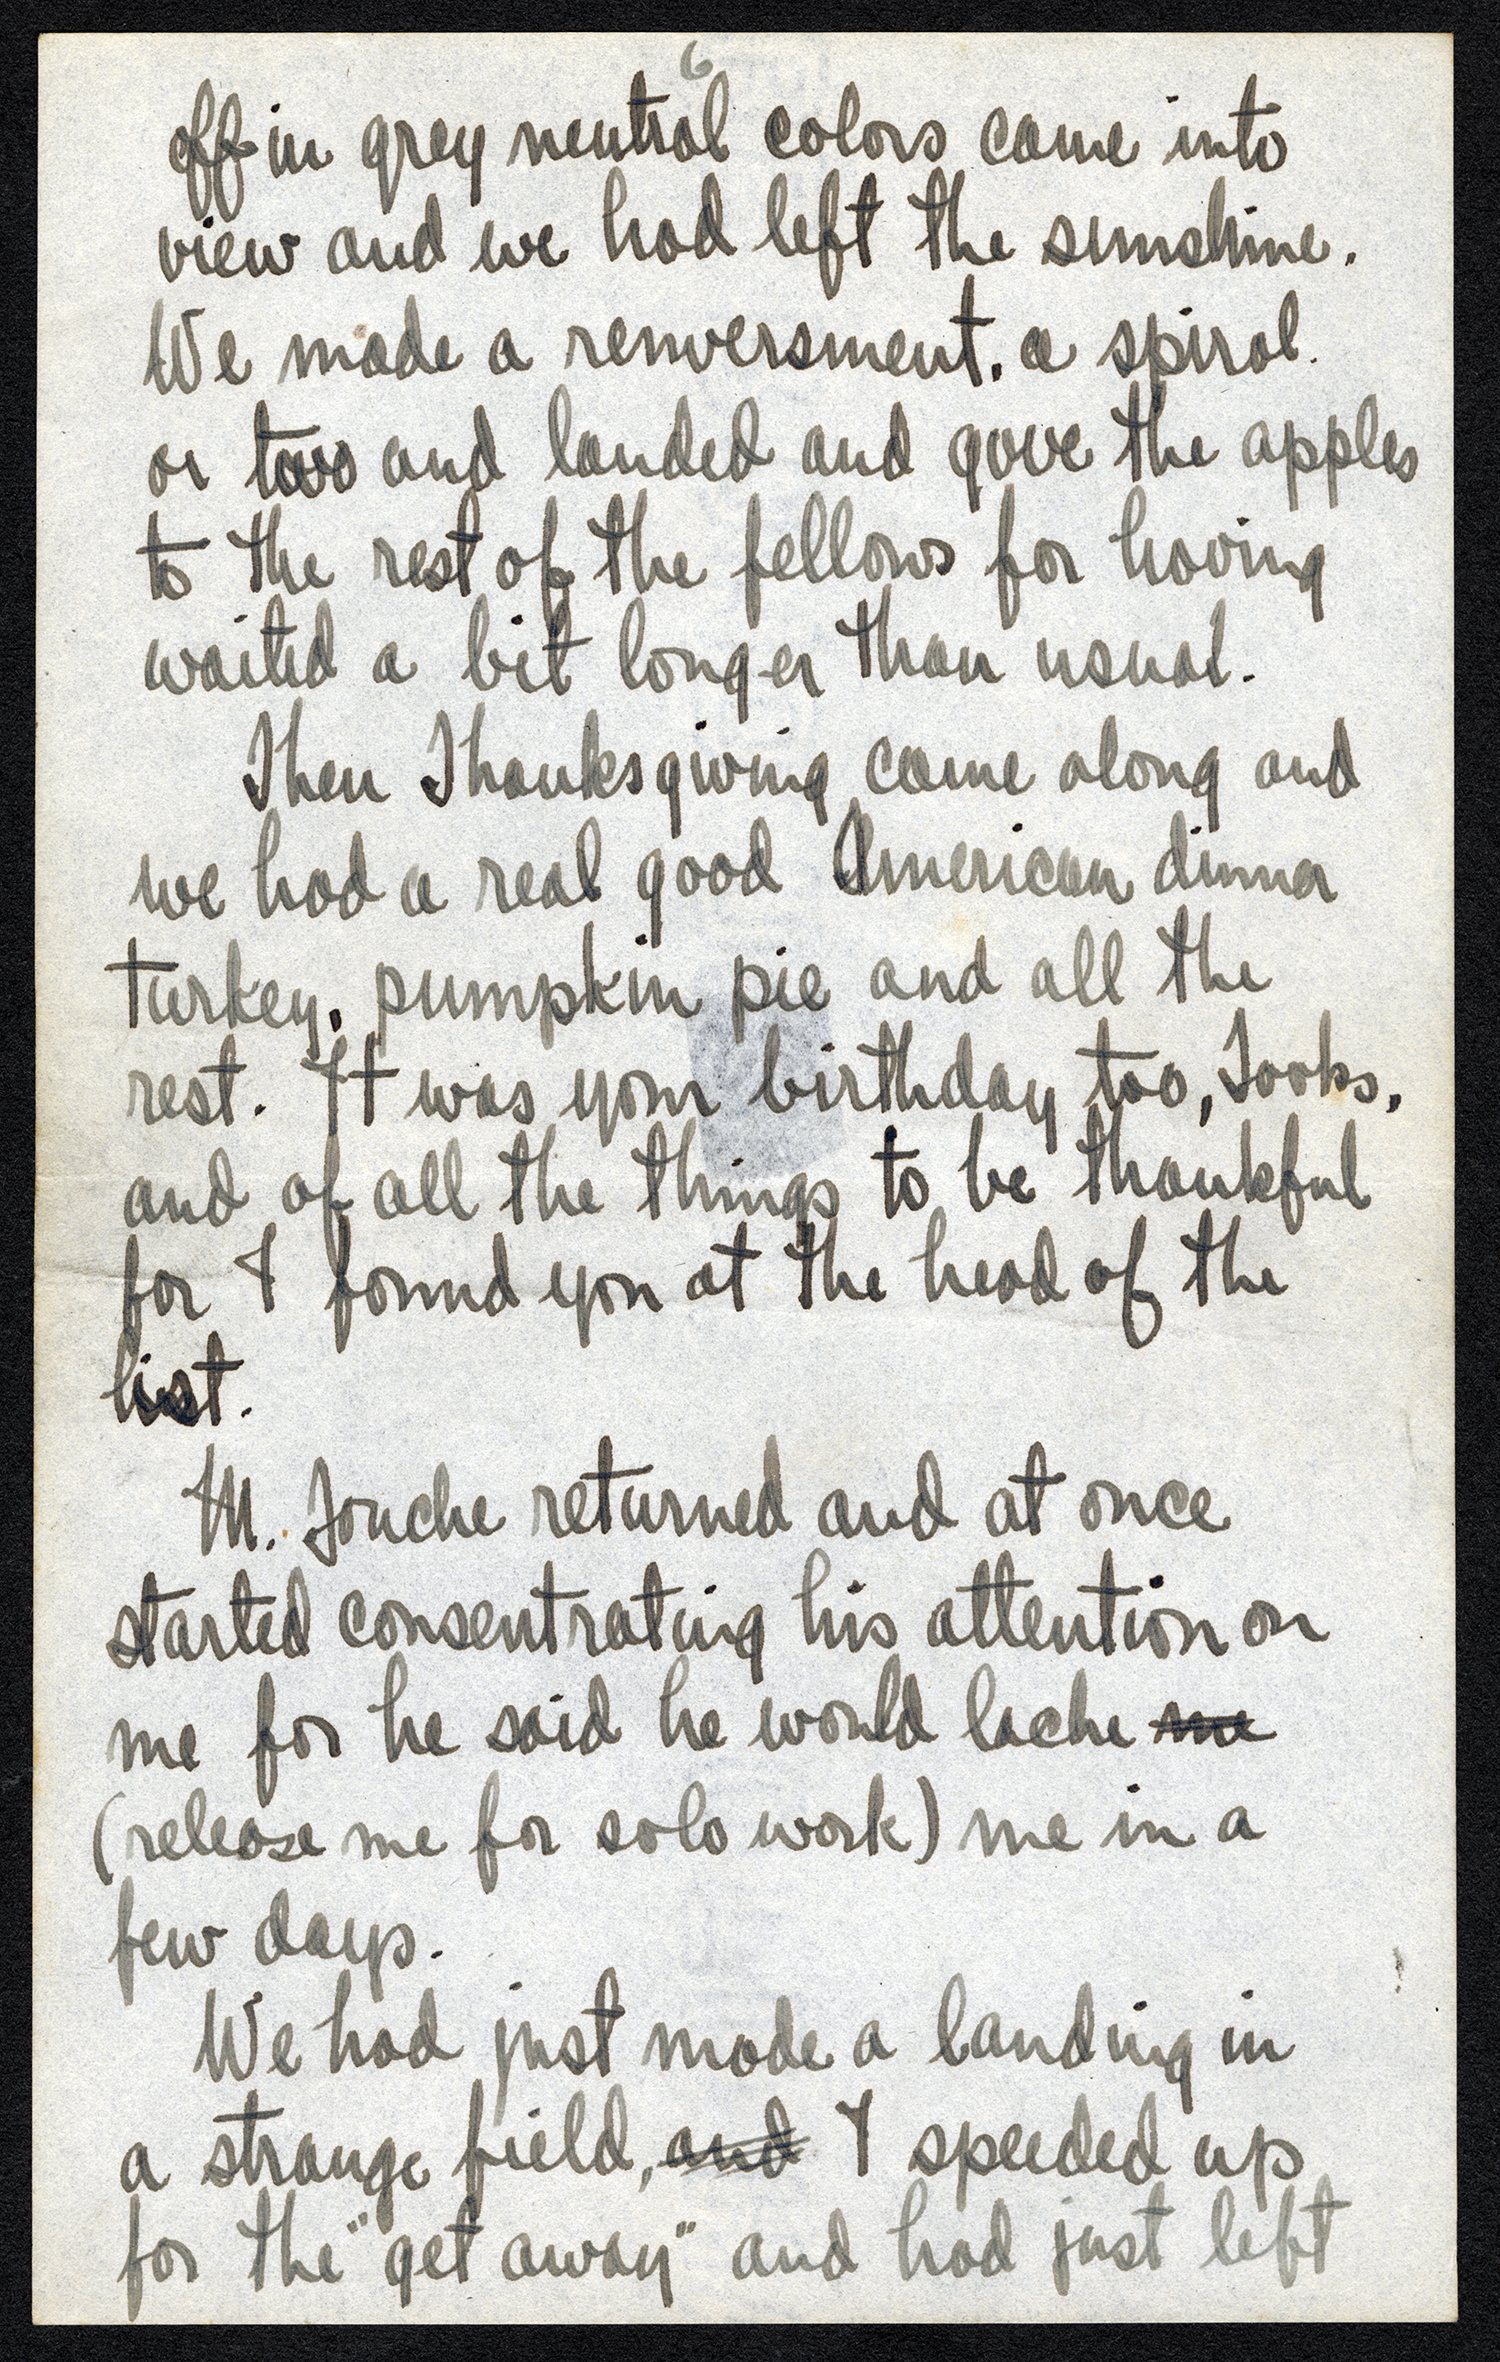 6
off in grey neutral colors came into
view and we had left the sunshine.
We made a renversment, a spiral
or two and landed and gave the apples
to the rest of the fellows for having
waited a bit longer than usual.
Then Thanksgiving came along and
we had a real good American dinner
turkey, pumpkin pie and all the
rest. It was your birthday too, Tooks,
and of all the things to be thankful
for I found you at the head of the
list.
M. Touche returned and at once
started consentrating his attention on
me for he said he would lache me
(release me for solo work) me in a
few days.
We had just made a landing in
a strange field, and I speeded up
for the "get away" and had just left